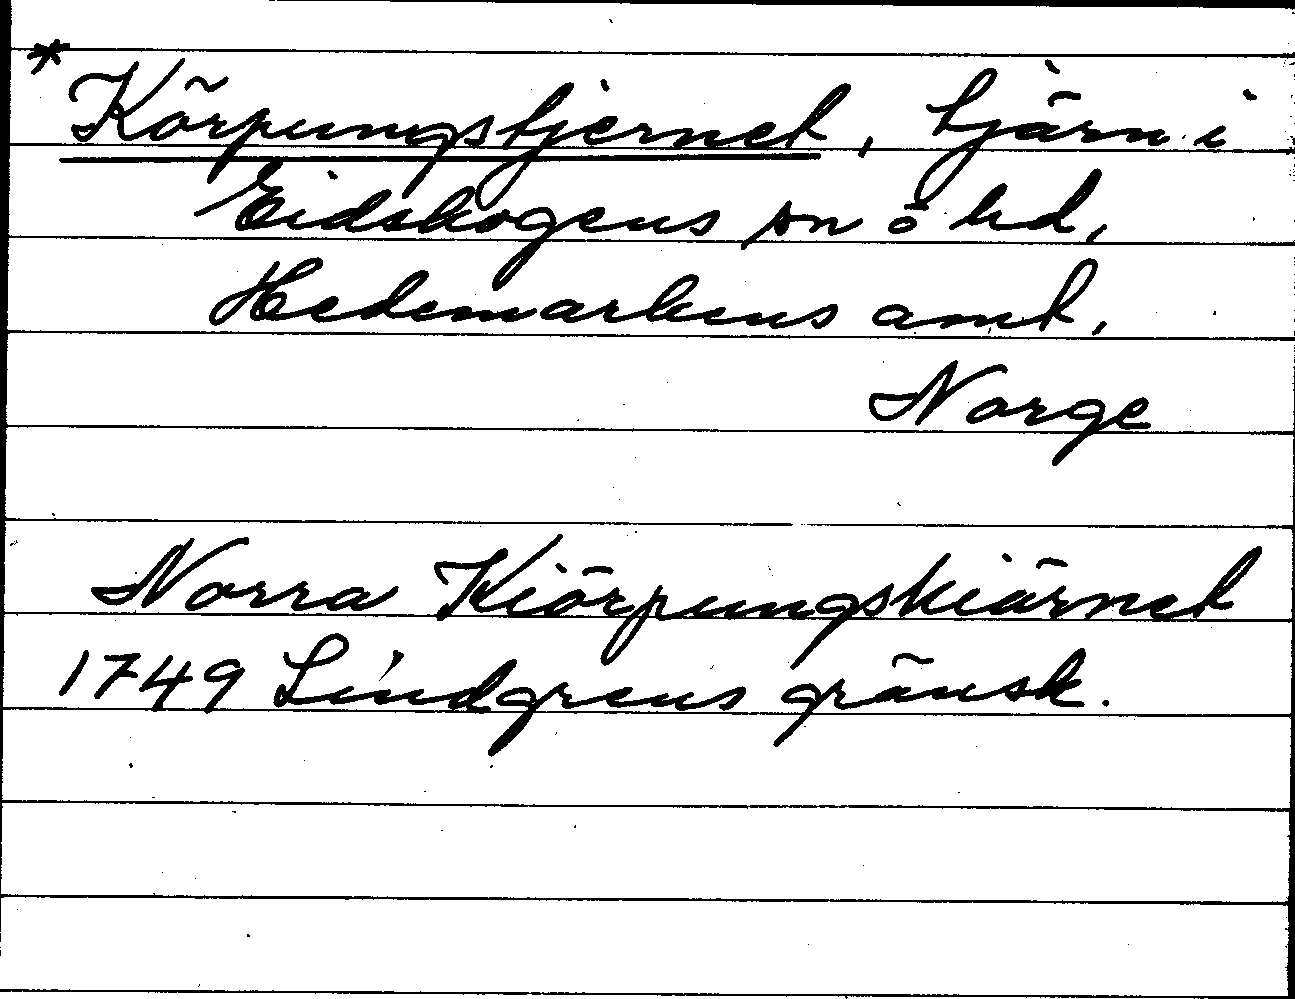 * Körpungstjernet, tjärn i
Eidskogens sn o hd,
Hedemarkens amt,
Norge
Norra Kiörpungskiärnet
1749 Lindgrens gränsk.